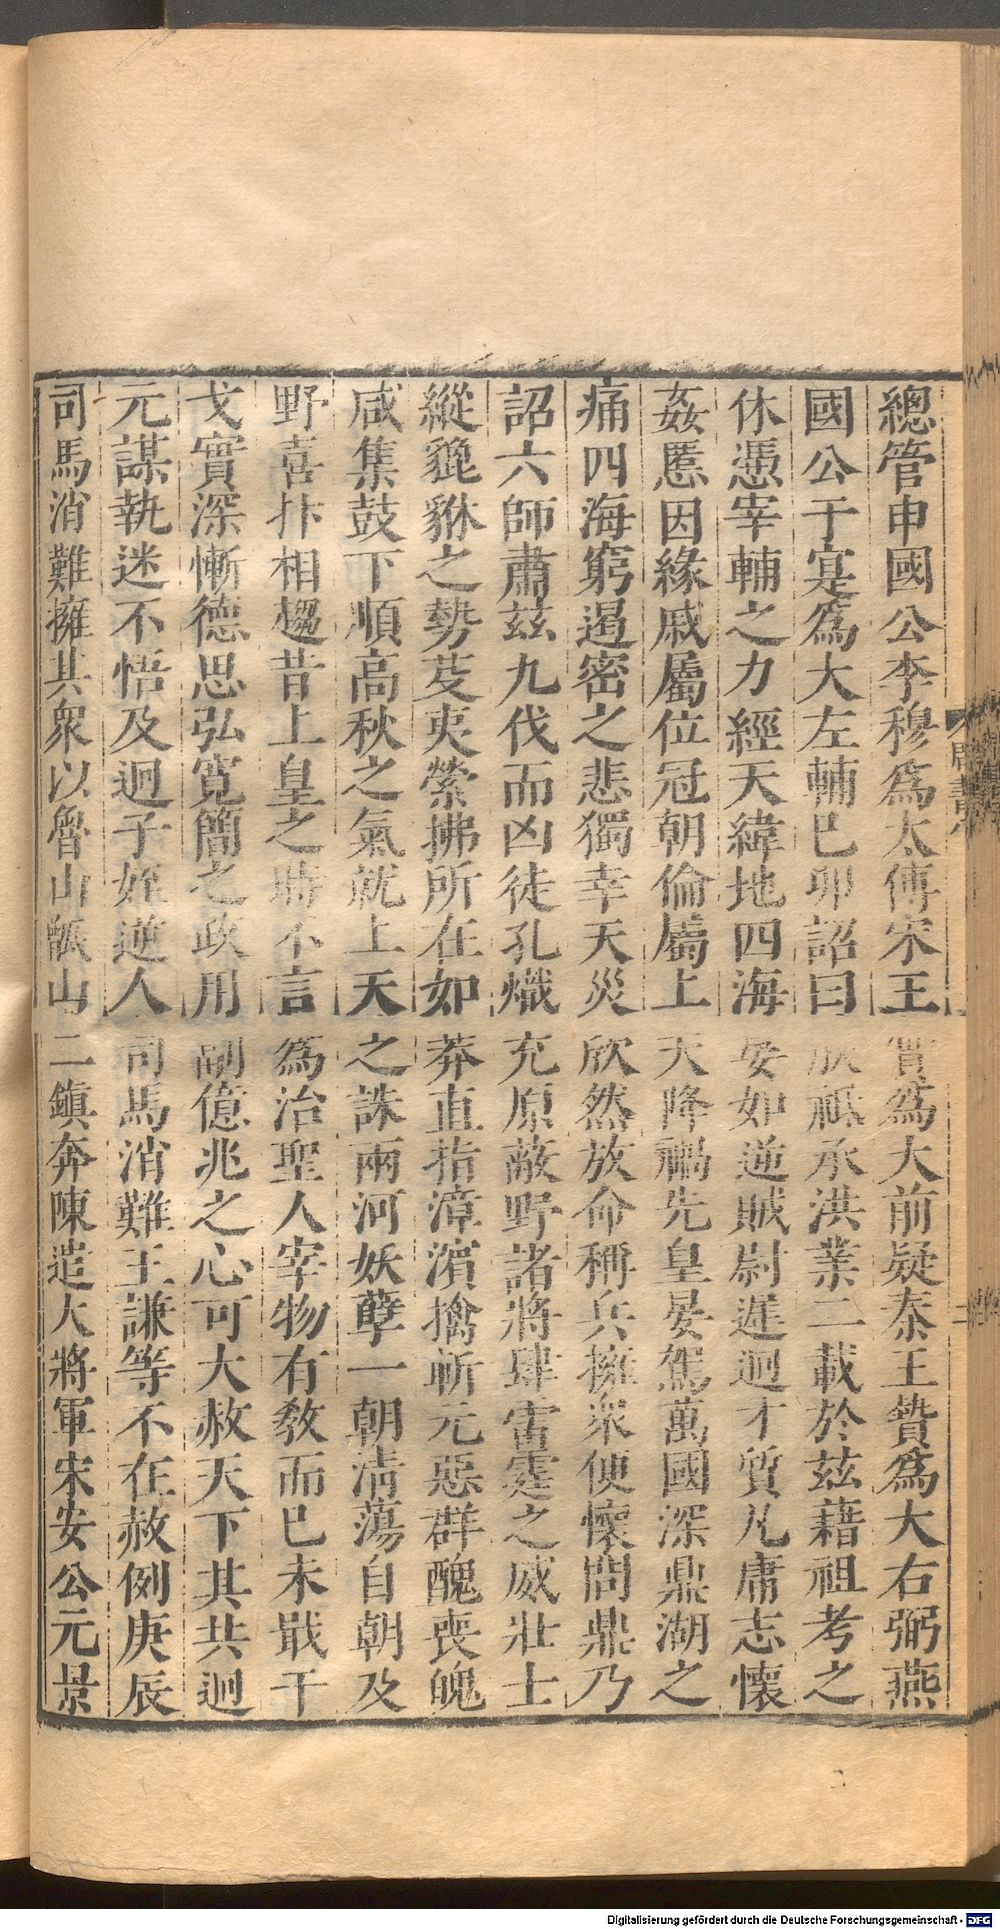 總管申國公李穆爲太傅宋王實爲大前疑秦王贄爲大右弼燕
國公于寔爲大左輔已卯詔曰朕祗承洪業二載於茲藉祖考之
休憑宰輔之力經天緯地四海晏如逆賊尉遲迥才質凡庸志懷
姦慝因緣戚屬位冠朝倫屬上天降禍先皇晏駕萬國深鼎湖之
痛四海窮遏密之悲獨幸天災欣然放命稱兵擁衆便懷問鼎乃
詔六師肅茲九伐而凶徒孔熾充原蔽野諸將肆雷霆之威壯士
縱貔貅之勢芟夷縈拂所在如莽直指漳濱擒斬元惡群醜喪魄
咸集鼓下順高秋之氣就上天之誅兩河妖孽一朝淸蕩自朝及
野喜抃相趨昔上皇之時不言爲治聖人宰物有敎而已未戢干
戈實深慚德思弘寛簡之政用副億兆之心可大赦天下其共迥
元謀執迷不悟及迥子姪逆人司馬消難王謙等不在赦例庚辰
司馬消難擁其衆以魯山甑山二鎭奔陳遣大將軍宋安公元景
周書八
Digitalisierung gefördert durch die Deutsche Forschungsgemeinschaft - DFG